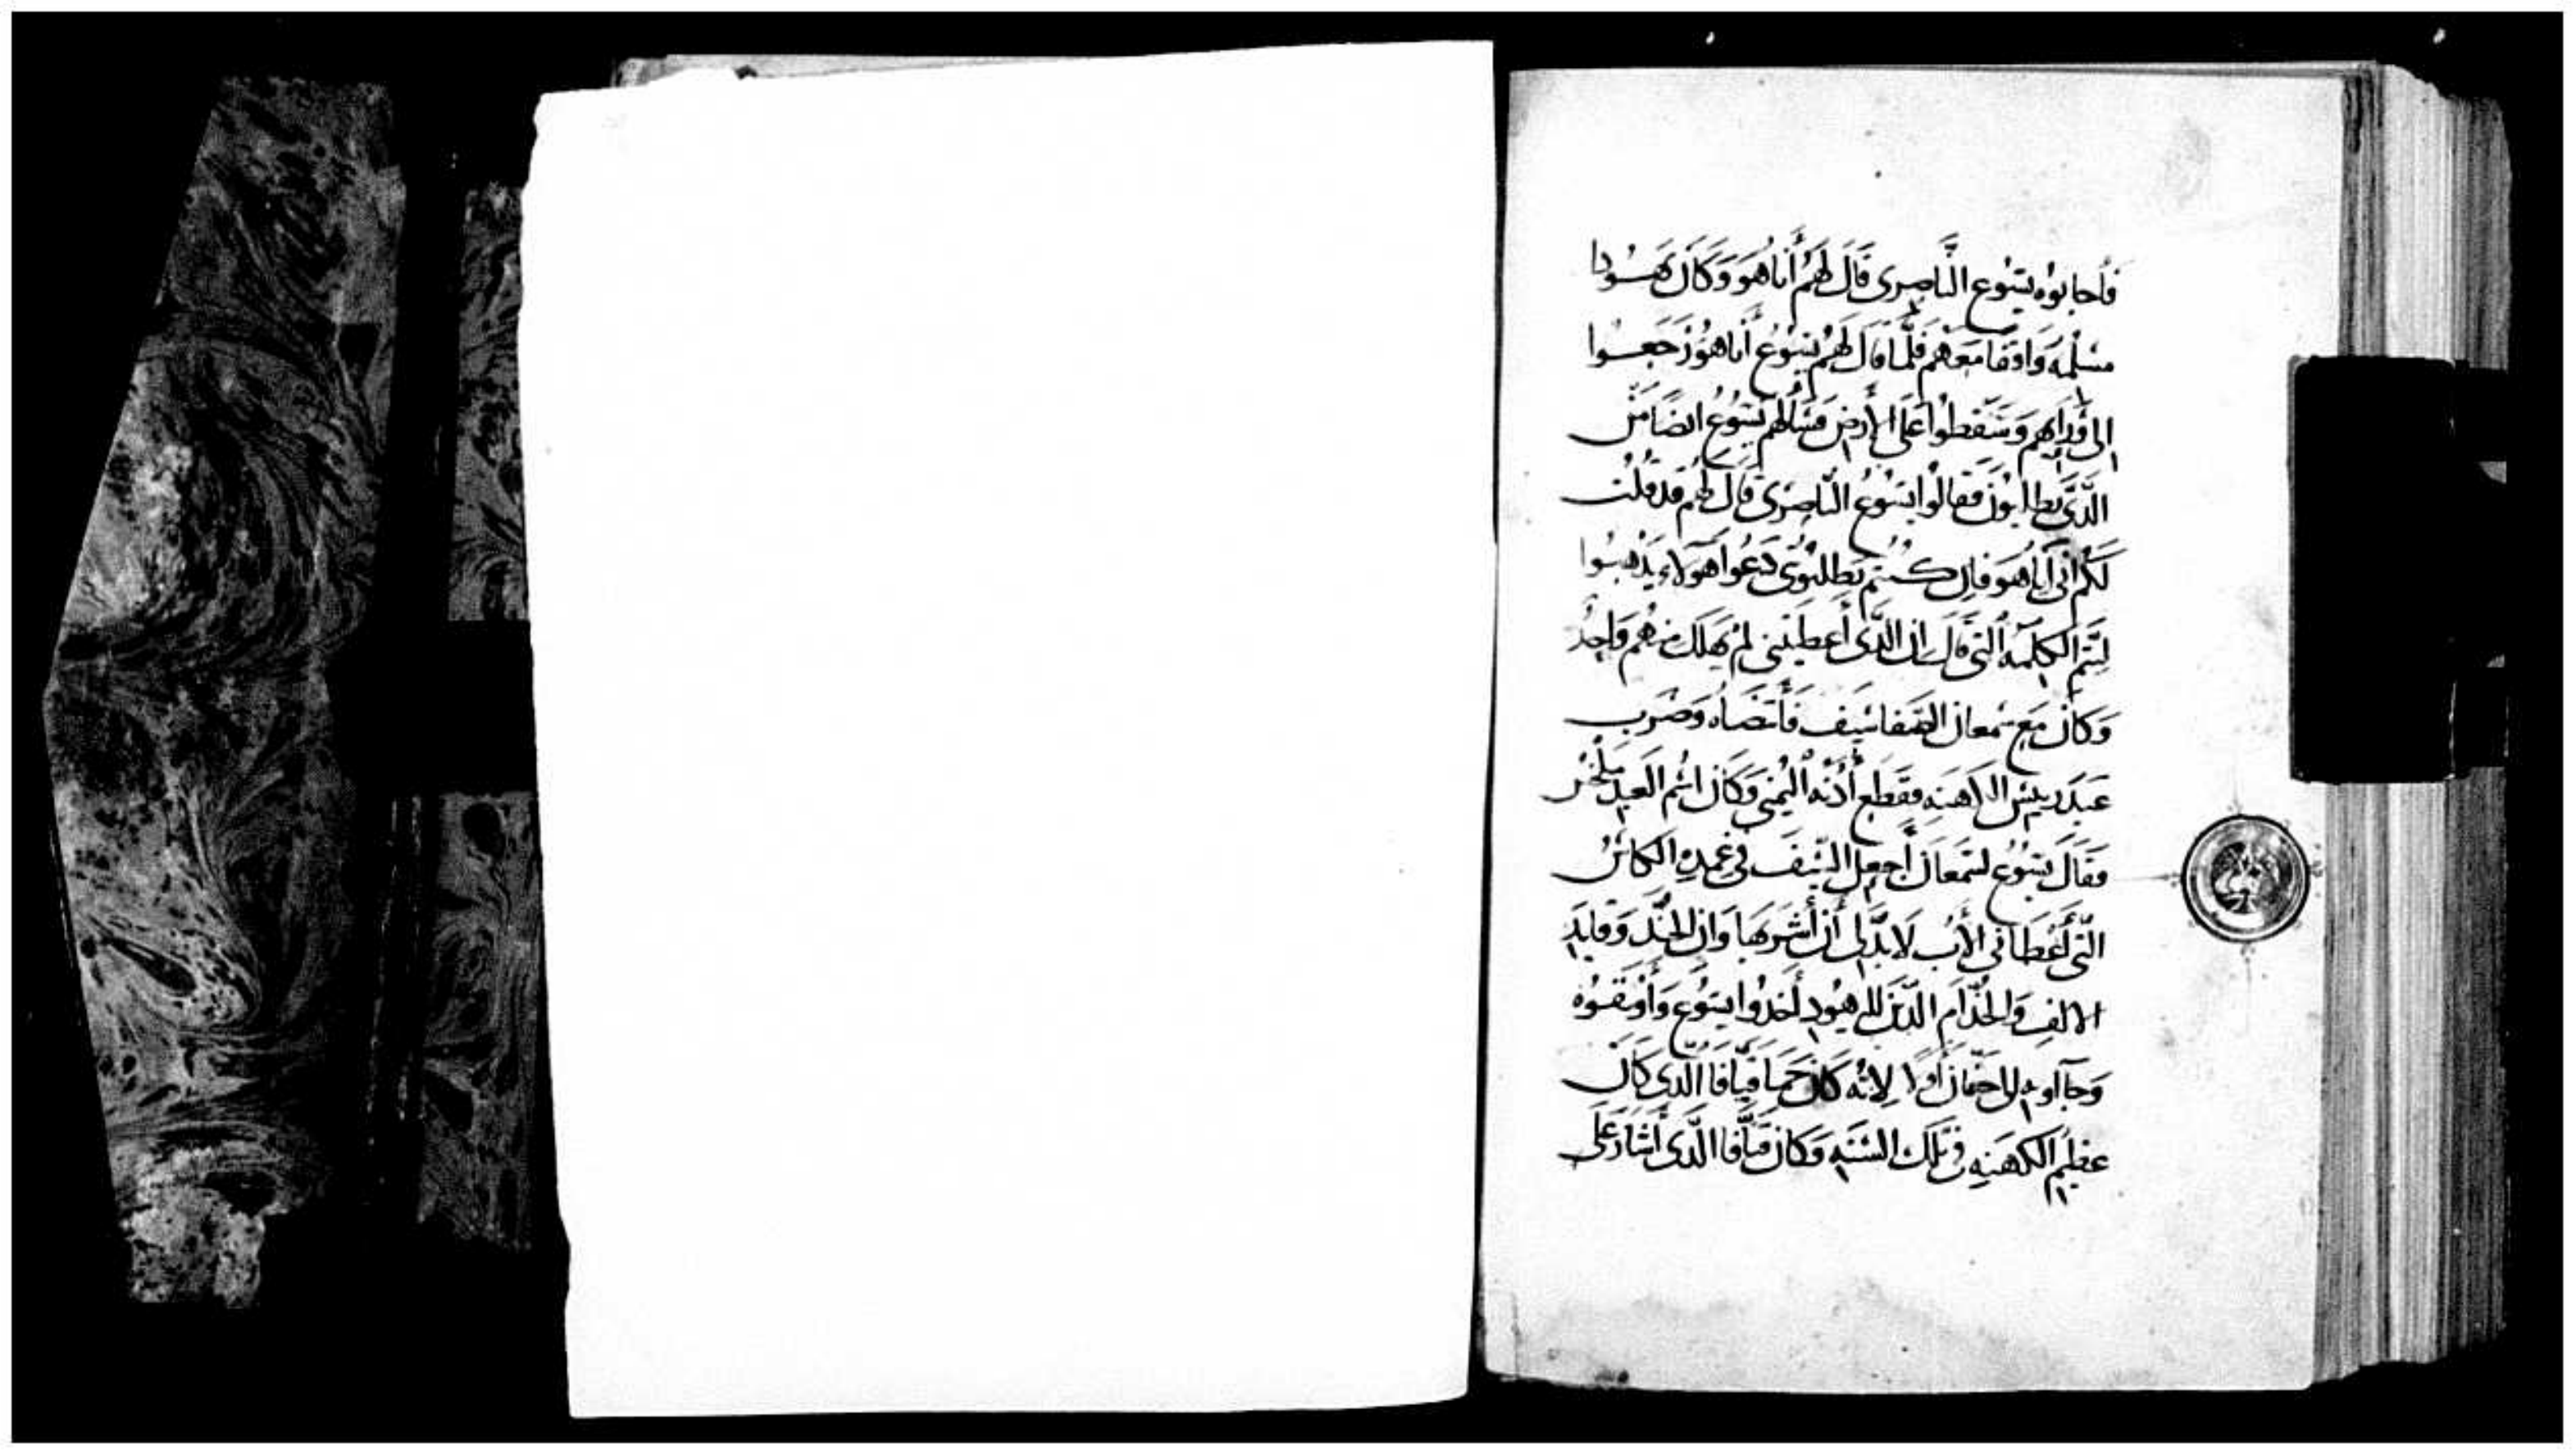 فأجابوه يسوع الناصرى قال لهم أنا هو وكان يهودا
مسلمه واقفا معهم فلما قال لهم يسوع أنا هو رجعوا
الى ورايهم وسقطوا على الأرض فسألهم يسوع ايضا من
الذى تطلبون فقالوا يسوع الناصرى قال لهم قد قلت
لكم انى أنا هو فان كنتم تطلبونى دعوا هولاء يذهبوا
لتتم الكلمه التى قال ان الذى أعطيتنى لم يهلك منهم واحد
وكان مع سمعان الصفا سيف فأنتضاه وضرب
عبد رييس الكهنه فقطع أذنه اليمنى وكان اسم العبد ملخس
فقال يسوع لسمعان أجعل السيف فى غمده الكاس
التى أعطانى الأب لا بد لى أن أشربها وان الجند وقايد
الالف والخدام الذين لليهود أخذوا يسوع وأوثقوه
وجآاوبه الى حنان اولا لانه كان حما قيافا الذى كان
عظيم الكهنه فى تلك السنه وكان قيافا الذى أشار على